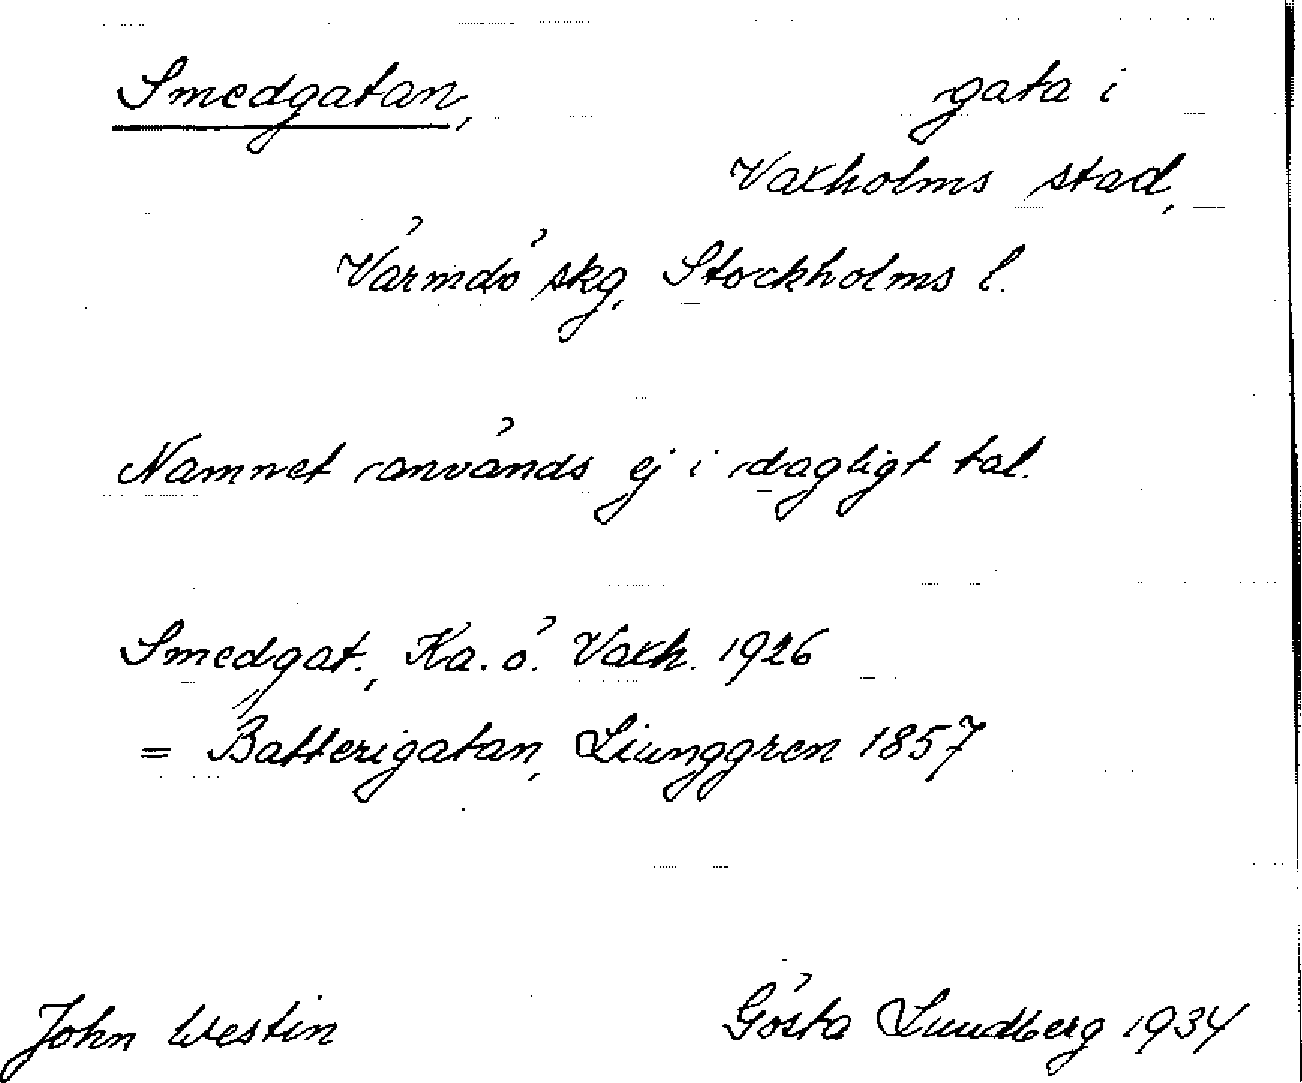 Smedgatan, gata i
Vaxholms stad,
Värmdö skg, Stockholms l.
Namnet användes ej i dagligt tal.
Smedgat., Ka. ö. Vaxh. 1926
= Batterigatan, Ljunggren 1857
John Westin Gösta Lundberg 1934